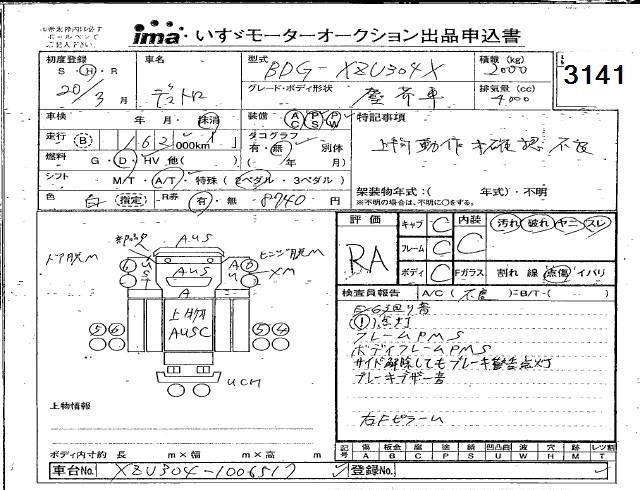 ima・いすゞモーターオークション出品申込書
3141
初度登録
S・H・R
20/3月
車名
デュトロ
型式
BDG-XZU304X
積載(kg)
2000
グレード・ボディ形状
塵芥車
排気量(cc)
4000
車検 年・月・抹消
装備 AC PS PW
特記事項
走行 B 162000km
タコグラフ
有・無 別体
(年/月)
上物動作未確認 不良
燃料 G・D・HV 他( )
シフト M/T・A/T・特殊(2ペダル・3ペダル)
架装物年式:( 年式)・不明
※不明の場合は、不明に○をする。
色 白 (指定) R券 有・無 8740円
評価
RA
キャブ C
内装 C
汚れ・破れ・ヤニ・スレ
フレーム C
ボディ C
Fガラス 割れ 線 点傷 イバリ
検査員報告 A/C(不良)=B/T・( )
E-G廻り音
(!)点灯
フレームPMS
ボディフレームPMS
サイド解除してもブレーキ警告点灯
ブレーキブザー音
右Fピラーム
AUS
ドア脱M
ヒンジ脱M
XM
AUS
A
上物
AUSC
5 6
5 4
UCH
上物情報
ボディ内寸約 長 m×幅 m×高 m
記号 傷A 板金B 腐C 塗P 錆S 凹凸凸U 曲W 波W 穴H 跡M レツ割T
車台No. XZU304-1006517
登録No.